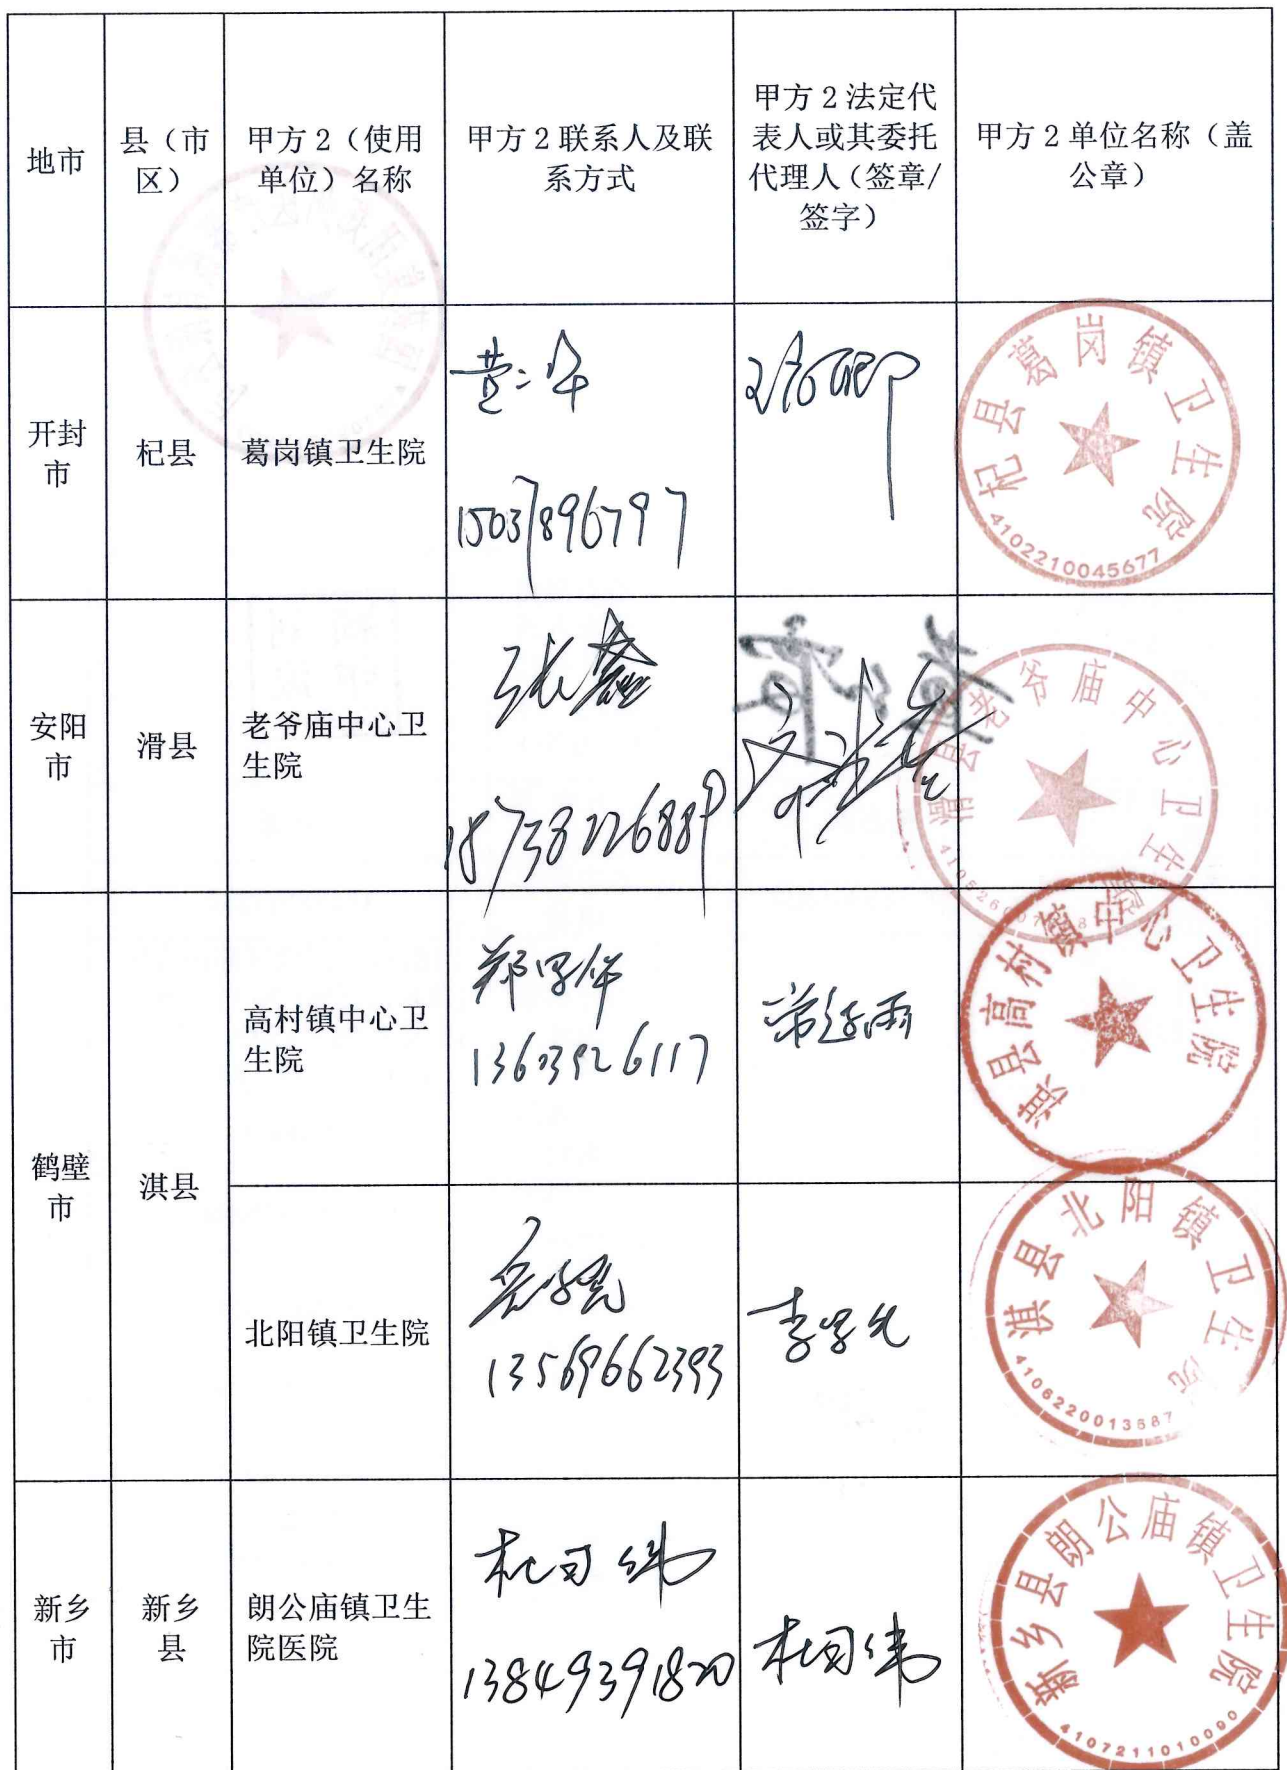 地市
县（市
区）
甲方 2（使用
单位）名称
甲方 2 联系人及联
系方式
甲方 2 法定代
表人或其委托
代理人（签章/
签字）
甲方 2 单位名称（盖
公章）
开封
市
杞县
葛岗镇卫生院
15037896797
杞县葛岗镇卫生院
4102210045677
安阳
市
滑县
老爷庙中心卫
生院
张鑫
18738226889
滑县老爷庙中心卫生院
鹤壁
市
淇县
高村镇中心卫
生院
13603926117
淇县高村镇中心卫生院
北阳镇卫生院
13569662393
李学允
淇县北阳镇卫生院
4106220013687
新乡
市
新乡
县
朗公庙镇卫生
院医院
杜司伟
13849391820
杜司伟
新乡县朗公庙镇卫生院
4107211010090